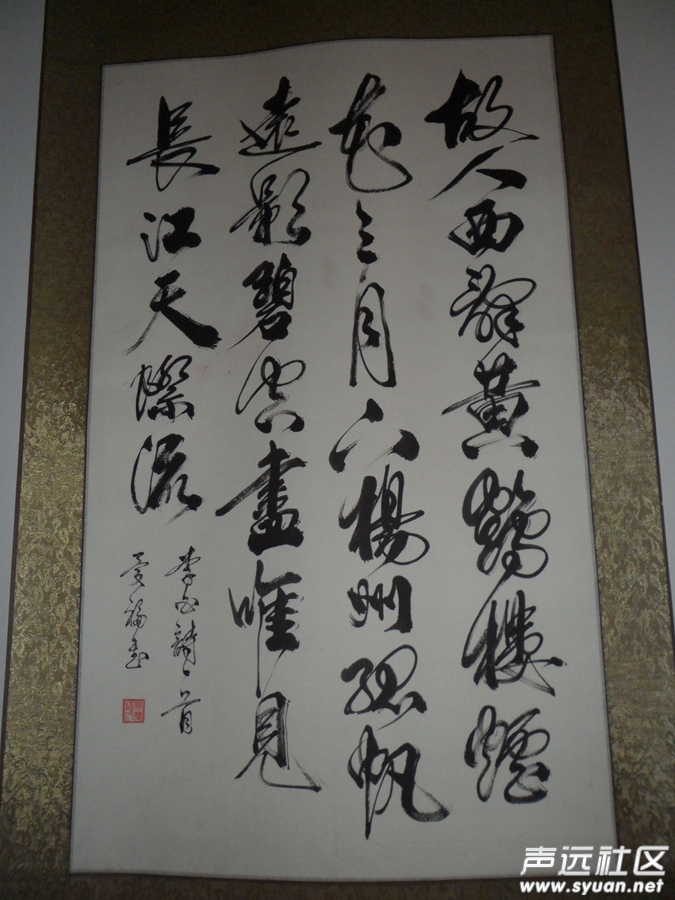 故人西辭黃鶴樓煙
花三月下楊州孤帆
遠影碧空盡唯見
長江天際流
李白詩一首
福書
声远社区
www.syuan.net